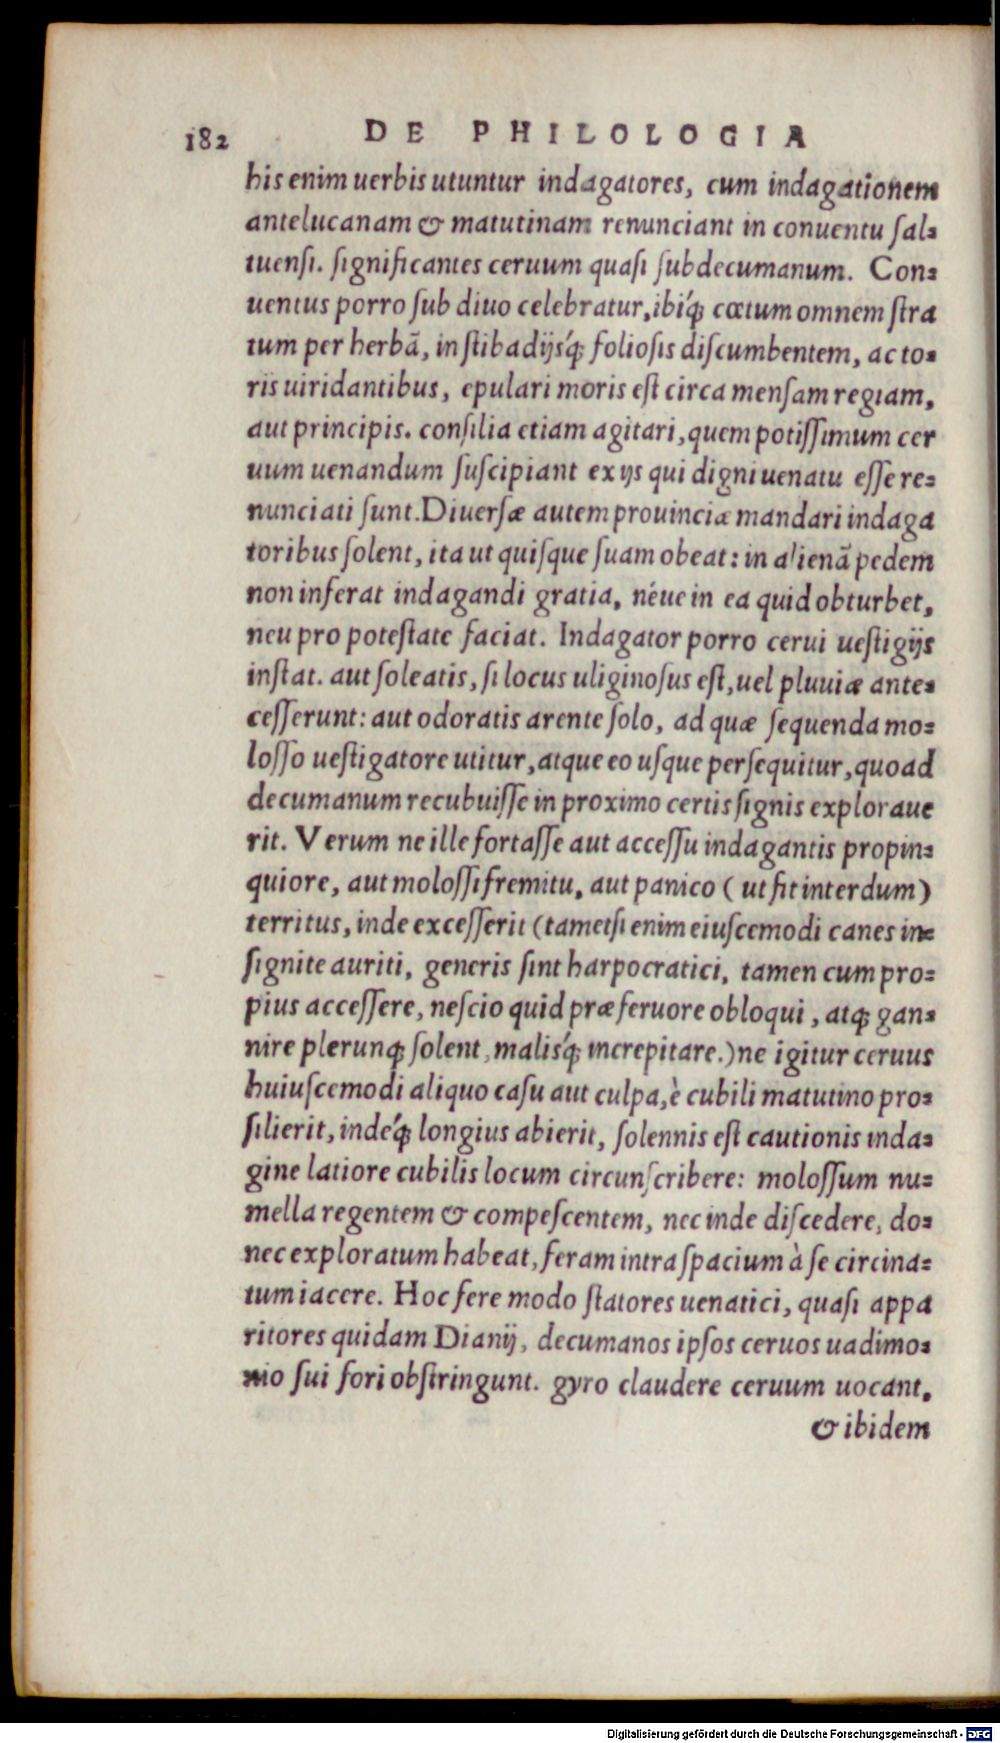 182 DE PHILOLOGIA
his enim uerbis utuntur indagatores, cum indagationem
antelucanam & matutinam renunciant in conuentu ſal⸗
tuenſi. ſignificantes ceruum quaſi ſubdecumanum. Con⸗
uentus porro ſub diuo celebratur, ibiq́ꝫ cœtum omnem ſtra
tum per herbã, in ſtibadijsq́ꝫ folioſis diſcumbentem, ac to⸗
ris uiridantibus, epulari moris eſt circa menſam regiam,
aut principis. conſilia etiam agitari, quem potiſſimum cer
uum uenandum ſuſcipiant ex ijs qui digni uenatu eſſe re⸗
nunciati ſunt. Diuerſæ autem prouinciæ mandari indaga
toribus ſolent, ita ut quiſque ſuam obeat: in alienã pedem
non inferat indagandi gratia, néue in ea quid obturbet,
neu pro poteſtate faciat. Indagator porro cerui ueſtigijs
inſtat. aut ſoleatis, ſi locus uliginoſus eſt, uel pluuiæ ante⸗
ceſſerunt: aut odoratis arente ſolo, ad quæ ſequenda mo⸗
loſſo ueſtigatore utitur, atque eo uſque perſequitur, quoad
decumanum recubuiſſe in proximo certis ſignis exploraue
rit. Verum ne ille fortaſſe aut acceſſu indagantis propin⸗
quiore, aut moloſſi fremitu, aut panico (ut fit interdum)
territus, inde exceſſerit (tametſi enim eiuſcemodi canes in⸗
ſignite auriti, generis ſint harpocratici, tamen cum pro⸗
pius acceſſere, neſcio quid præ feruore obloqui, atqꝫ gan⸗
nire plerunqꝫ ſolent, malisq́ꝫ increpitare.) ne igitur ceruus
huiuſcemodi aliquo caſu aut culpa, è cubili matutino pro⸗
ſilierit, indeq́ꝫ longius abierit, ſolennis eſt cautionis inda⸗
gine latiore cubilis locum circunſcribere: moloſſum nu⸗
mella regentem & compeſcentem, nec inde diſcedere, do⸗
nec exploratum habeat, feram intra ſpacium à ſe circina⸗
tum iacere. Hoc fere modo ſtatores uenatici, quaſi appa
ritores quidam Dianij, decumanos ipſos ceruos uadimo⸗
nio ſui fori obſtringunt. gyro claudere ceruum uocant,
& ibidem
Digitalisierung gefördert durch die Deutsche Forschungsgemeinschaft - DFG